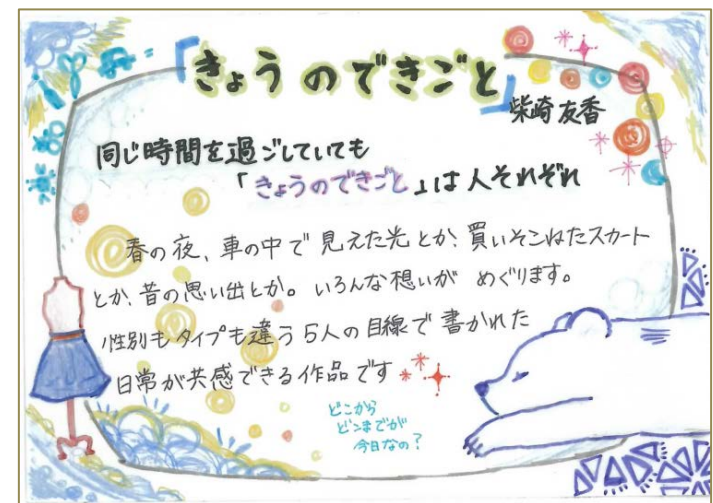 「きょうのできごと」
柴崎友香
同じ時間を過ごしていても
「きょうのできごと」は人それぞれ
春の夜、車の中で見えた光とか、買いそこねたスカート
とか、昔の思い出とか。いろんな想いがめぐります。
性別もタイプも違う5人の目線で書かれた
日常が共感できる作品です
どこから
どこまでが
今日なの?